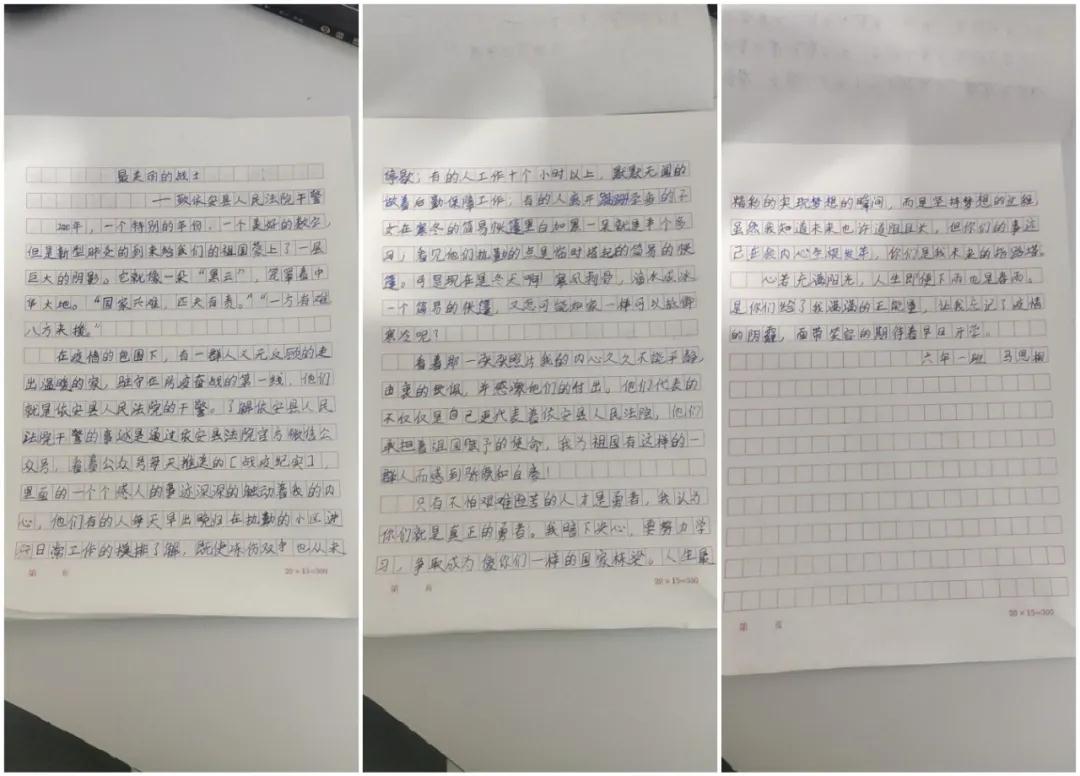 最美丽的战士
——致依安县人民法院干警
2020年，一个特别的年份，一个美好的数字，
但是新型肺炎的到来给我们的祖国蒙上了一层
巨大的阴影。它就像一朵“黑云”，笼罩着中
华大地。“国家兴难，匹夫有责。”“一方有难
八方来援。”
在疫情的包围下，有一群人义无反顾的走
出温暖的家，驻守在防疫奋战的第一线，他们
就是依安县人民法院的干警。了解依安县人民
法院干警的事迹是通过依安县法院官方微信公
众号，看着公众号每天推送的［战疫纪实］，
里面的一个个感人的事迹深深的触动着我的内
心，他们有的人每天早出晚归在执勤的小区进
行日常工作的摸排了解，既使冻伤双手也从未
停歇；有的人工作十个小时以上，默默无闻的
做着后勤保障工作；有的人离开
在寒冬的简易帐篷里白加黑一呆就是半个多
月；看见他们执勤的点是临时搭起的简易的帐
篷。可是现在是冬天啊！寒风刺骨，滴水成冰
一个简易的帐篷，又怎可能如家一样可以抵御
寒冷呢？
看着那一张张照片我的内心久久不能平静，
由衷的敬佩，并感激他们的付出。他们代表的
不仅仅是自己更代表着依安县人民法院，他们
承担着祖国赋予的使命，我为祖国有这样的一
群人而感到骄傲和自豪！
只有不怕艰难困苦的人才是勇者，我认为
你们就是真正的勇者。我暗下决心，要努力学
习，争取成为像你们一样的国家栋梁。人生最
精彩的不是实现梦想的瞬间，而是坚持梦想的过程
虽然我知道未来也许道阻且长，但你们的事迹
已在我内心生根发芽，你们是我未来的指路塔。
心若充满阳光，人生即便下雨也是春雨。
是你们给了我满满的正能量，让我忘记了疫情
的阴霾，面带笑容的期待着早日开学。
六年一班 马思桐
第 页
20×15=300
第 页
20×15=300
第 页
20×15=300